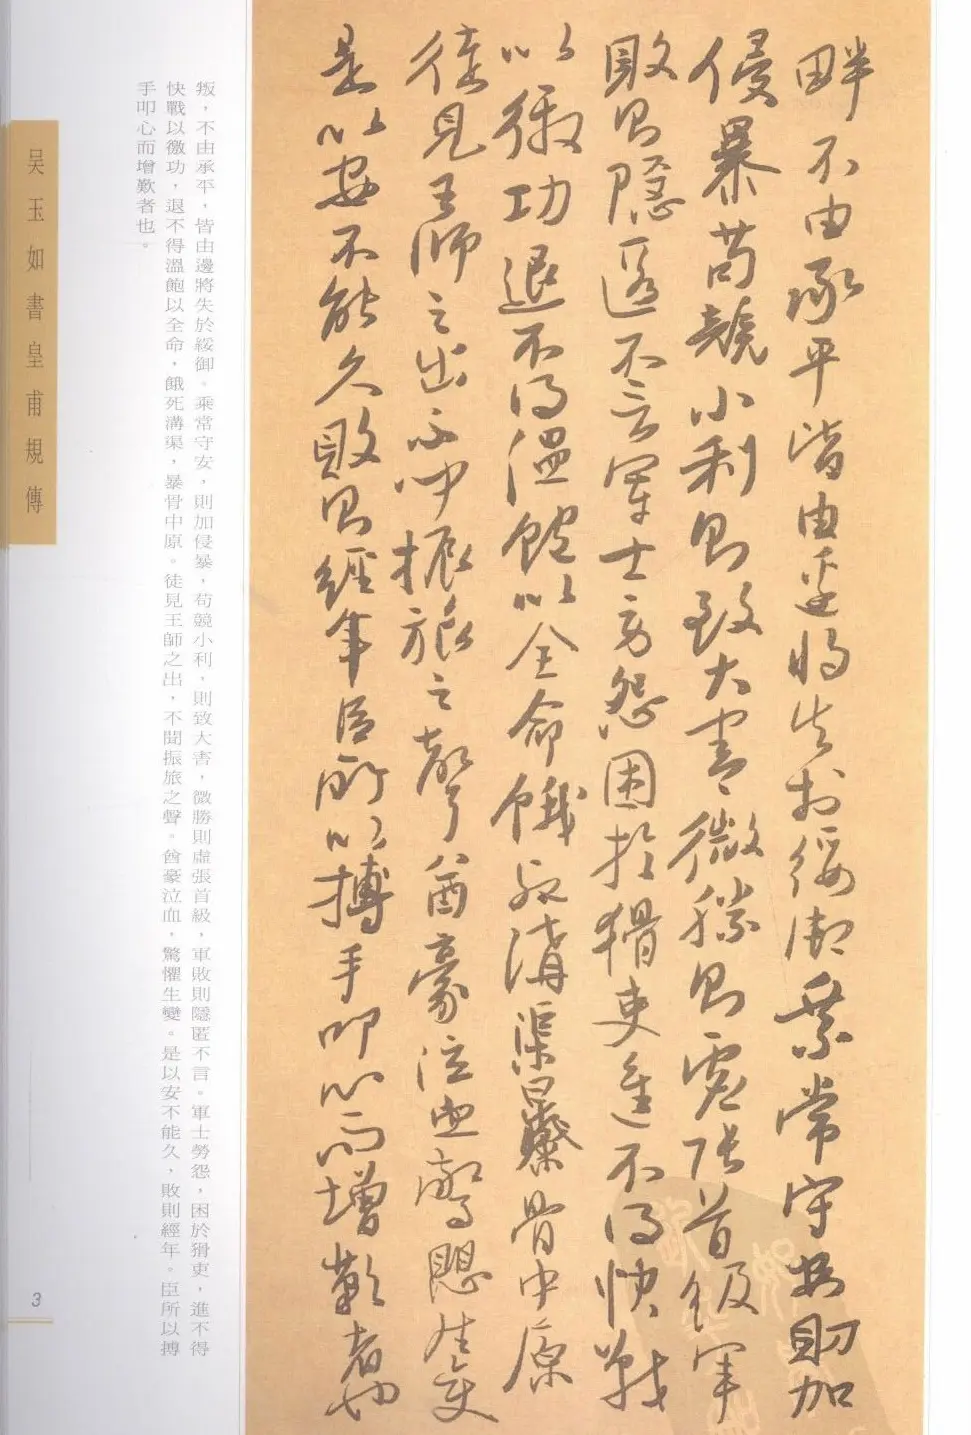 畔不由承平皆由邊將失於綏御乘常守安則加
侵暴苟競小利則致大害微勝則虛張首級軍
敗則隱匿不言軍士勞怨困於猾吏進不得快戰
以徼功退不得溫飽以全命餓死溝渠暴骨中原
徒見王師之出不聞振旅之聲酋豪泣血驚懼生變
是以安不能久敗則經年臣所以搏手叩心而增歎者也
叛，不由承平，皆由邊將失於綏御。乘常守安，則加侵暴，苟競小利，則致大害，微勝則虛張首級，軍敗則隱匿不言。軍士勞怨，困於猾吏，進不得
快戰以徼功，退不得溫飽以全命，餓死溝渠，暴骨中原。徒見王師之出，不聞振旅之聲。酋豪泣血，驚懼生變。是以安不能久，敗則經年。臣所以搏
手叩心而增歎者也。
吳玉如書皇甫規傳
3